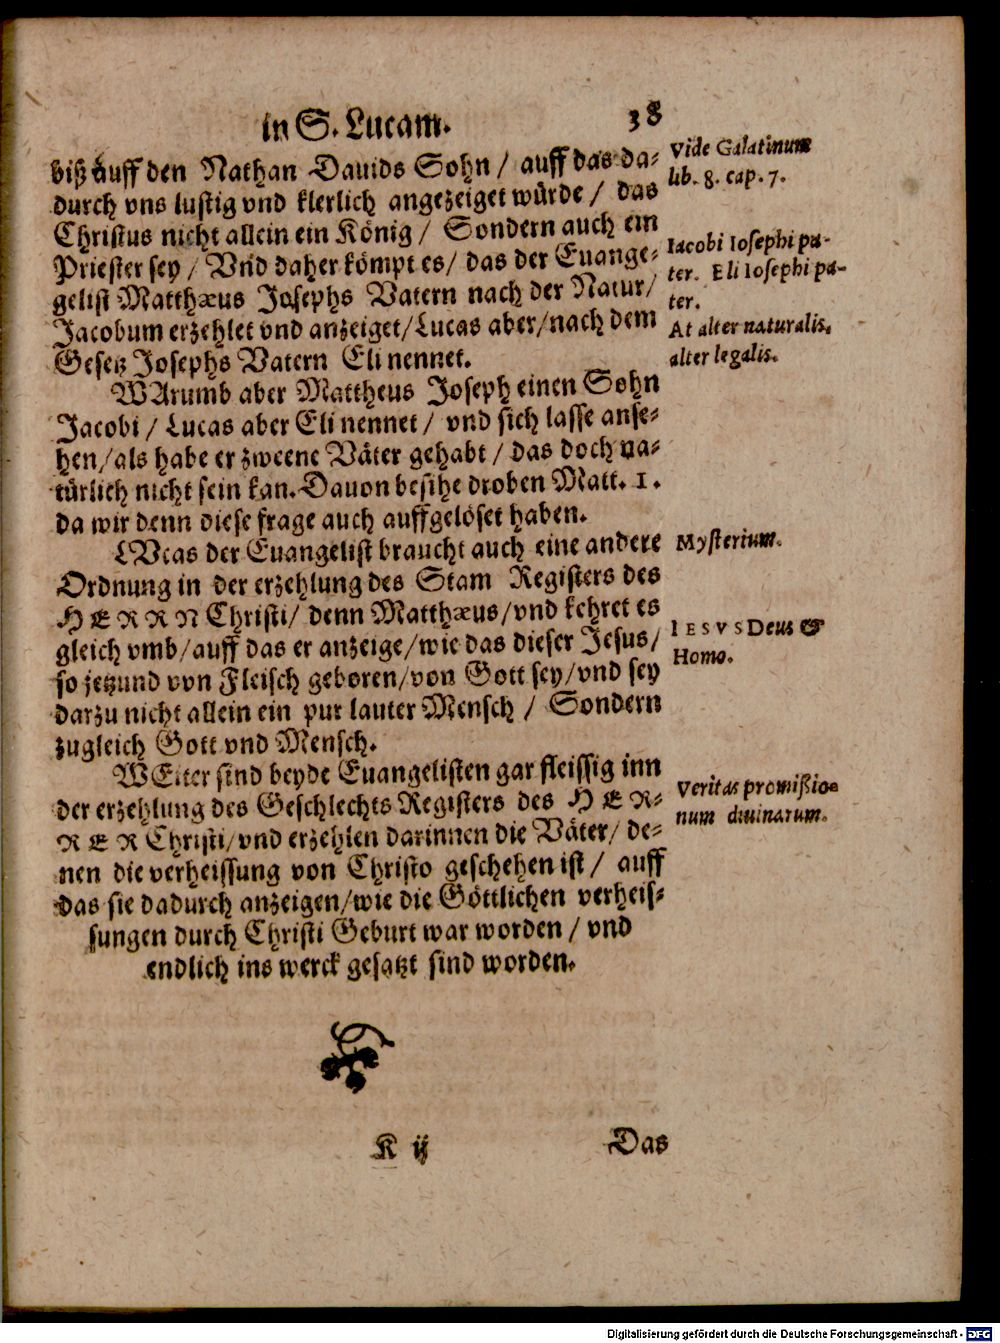 in S. Lucam. 38
biß auff den Nathan Dauids Sohn / auff das da-
durch vns lustig vnd klerlich angezeiget würde / das
Christus nicht allein ein König / Sondern auch ein
Priester sey / Vnd daher kömpt es / das der Euange-
gelist Matthæus Josephs Vatern nach der Natur /
Jacobum erzehlet vnd anzeiget / Lucas aber / nach dem
Gesetz Josephs Vatern Eli nennet.
WArumb aber Mattheus Joseph einen Sohn
Jacobi / Lucas aber Eli nennet / vnd sich lasse anse-
hen / als habe er zweene Väter gehabt / das doch na-
türlich nicht sein kan. Dauon besihe droben Matt. 1.
da wir denn diese frage auch auffgelöset haben.
LVcas der Euangelist braucht auch eine andere
Ordnung in der erzehlung des Stam Registers des
HERRN Christi / denn Matthæus / vnd kehret es
gleich vmb / auff das er anzeige / wie das dieser Jesus /
so jetzund von Fleisch geboren / von Gott sey / vnd sey
darzu nicht allein ein pur lauter Mensch / Sondern
zugleich Gott vnd Mensch.
WEiter sind beyde Euangelisten gar fleissig inn
der erzehlung des Geschlechts Registers des HER-
REN Christi / vnd erzehlen darinnen die Väter / de-
nen die verheissung von Christo geschehen ist / auff
das sie dadurch anzeigen / wie die Göttlichen verheis-
sungen durch Christi Geburt war worden / vnd
endlich ins werck gesatzt sind worden.
K ij Das
Vide Galatinum
lib. 8. cap. 7.
Iacobi Iosephi pa-
ter. Eli Iosephi pa-
ter.
At alter naturalis,
alter legalis.
Mysterium.
IESVS Deus &
Homo.
Veritas promißio-
num diuinarum.
Digitalisierung gefördert durch die Deutsche Forschungsgemeinschaft - DFG